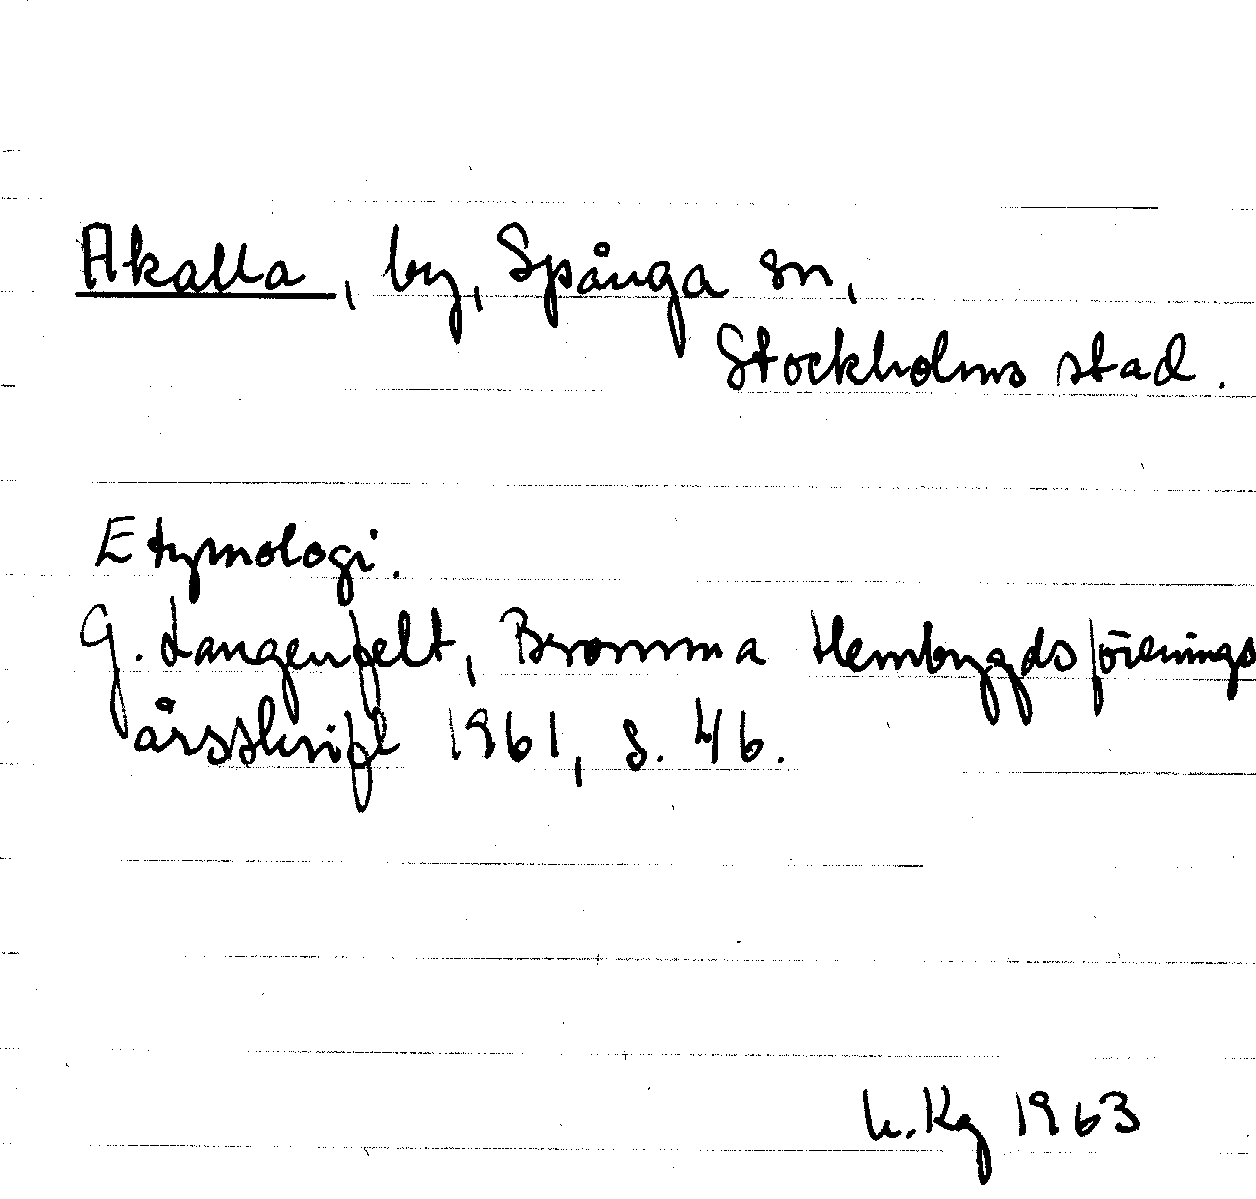 Akalla, by, Spånga sn,
Stockholms stad.
Etymologi.
G. Langenfelt, Bromma Hembygdsförenings
årsskrift 1961, s. 46.
h. Kg 1963